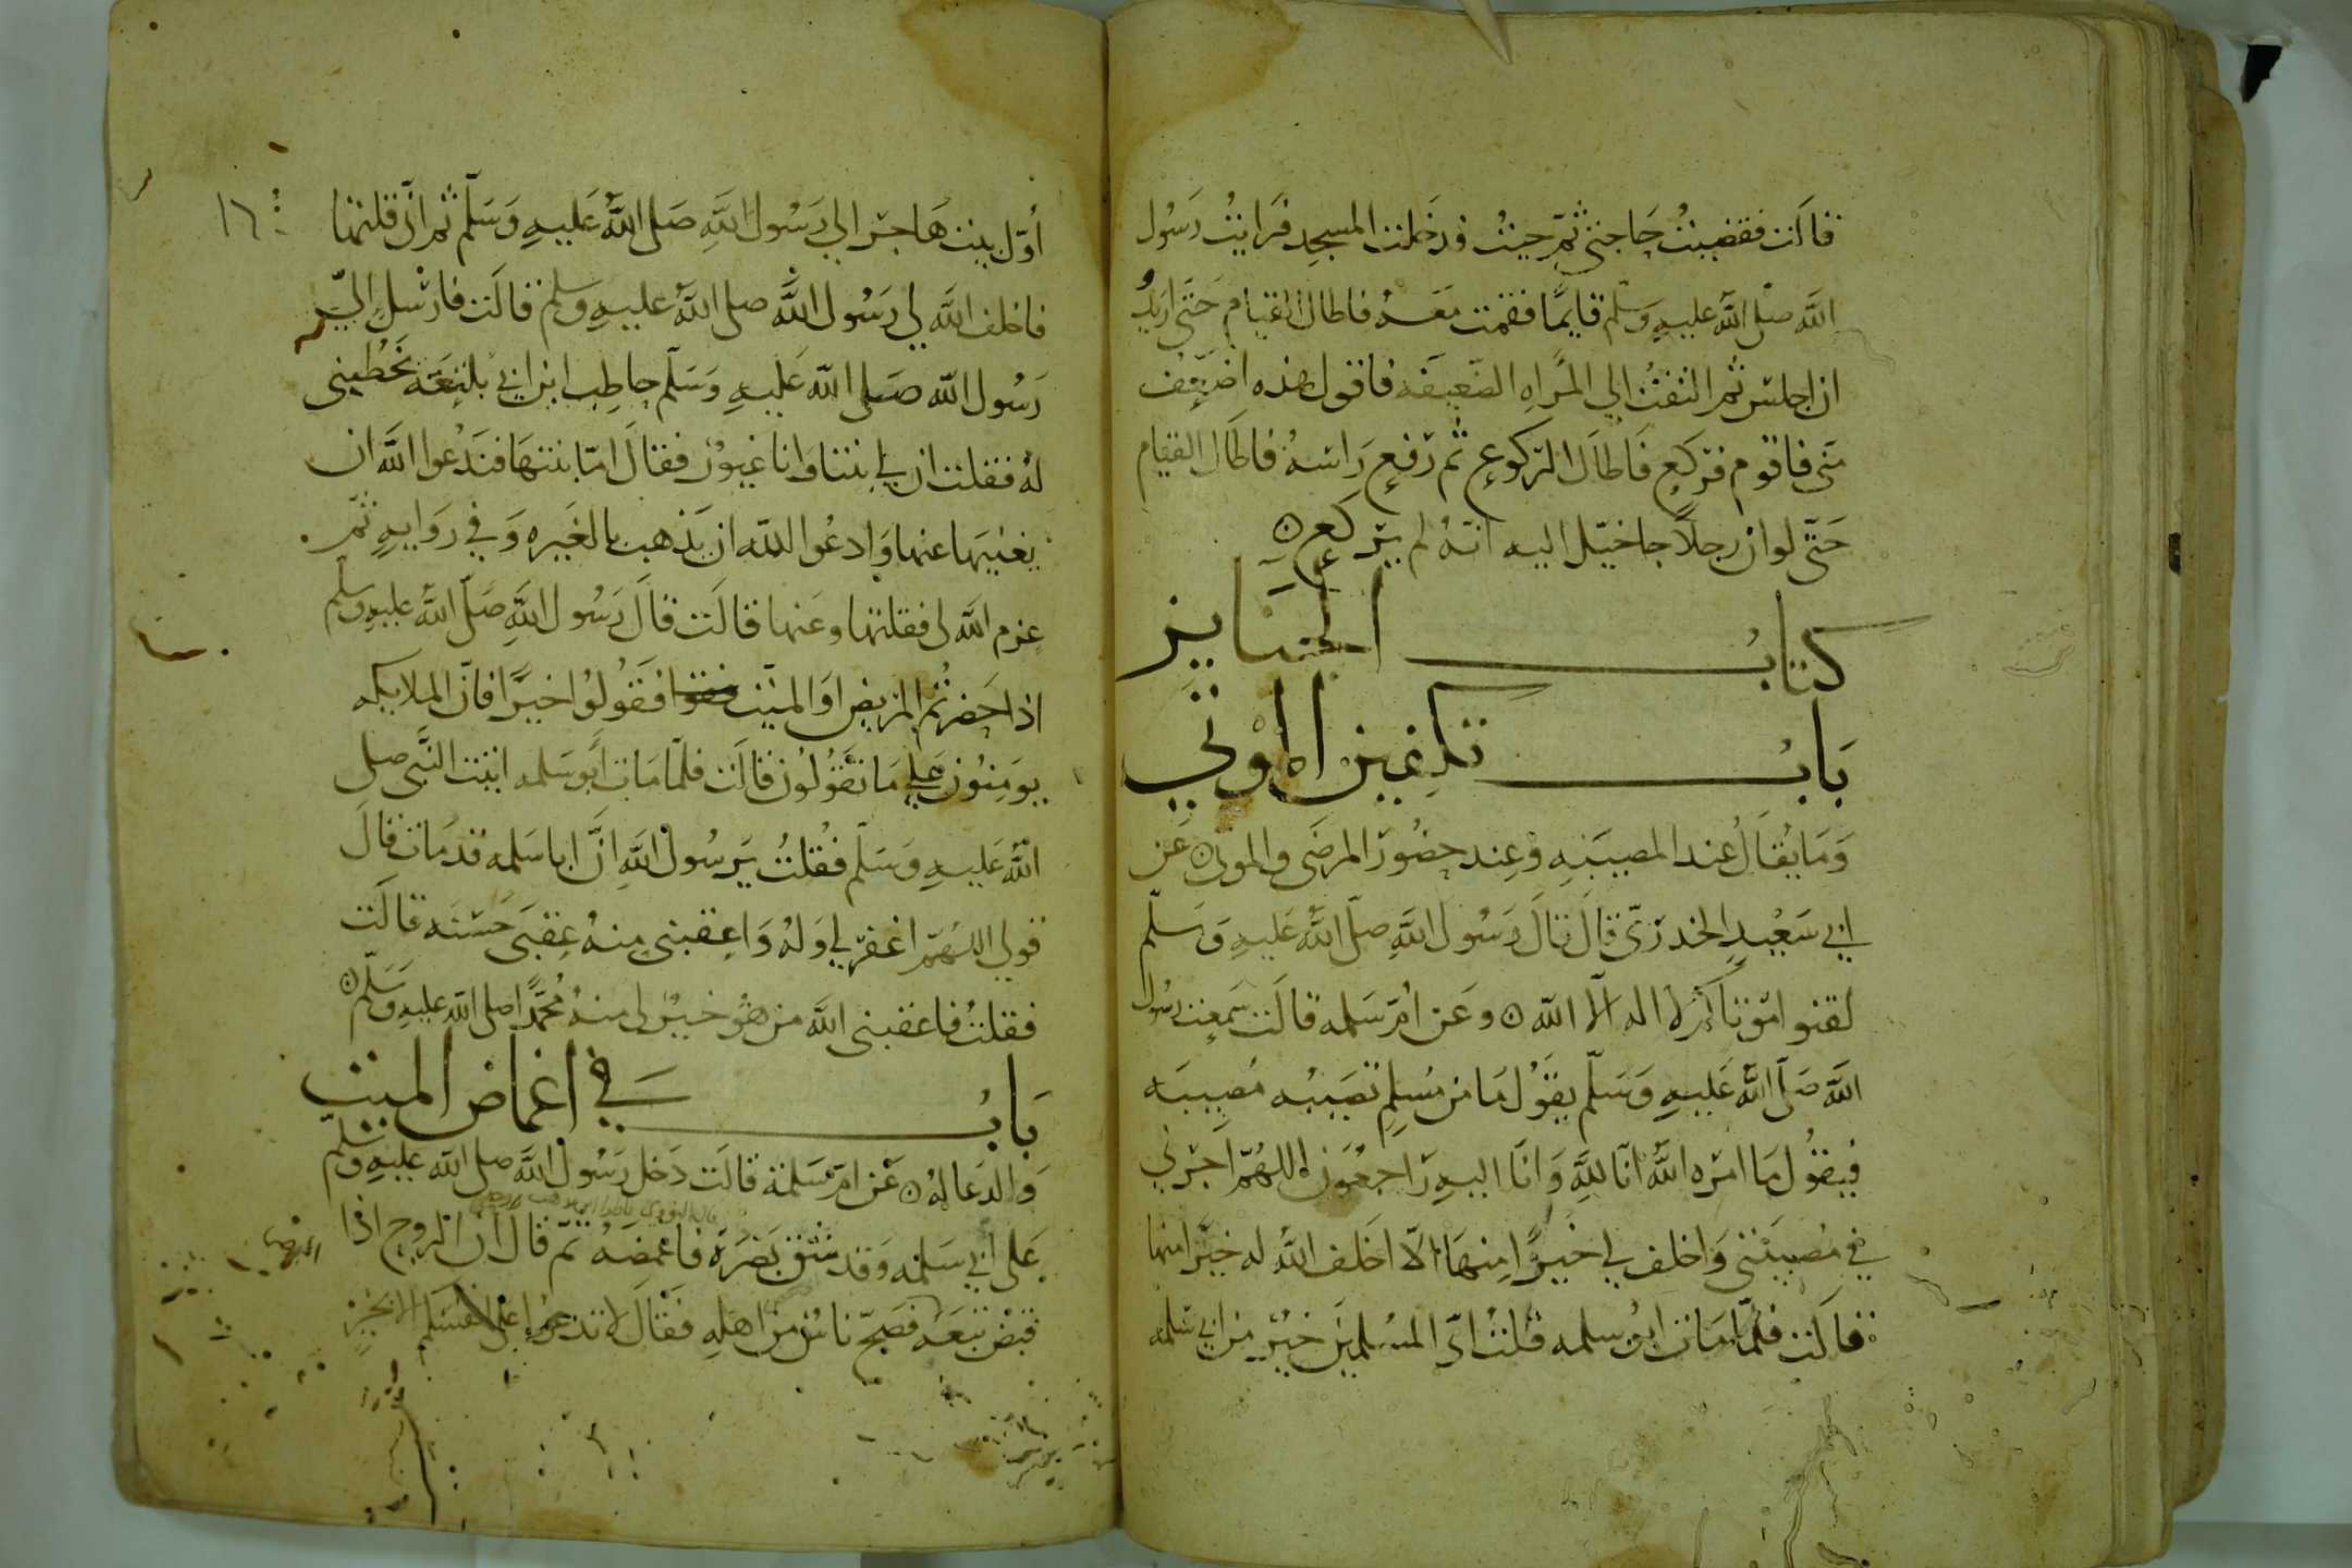 قالت فقضيت حاجتي ثم جيت ودخلت المسجد فرايت رسول
الله صلى الله عليه وسلم قايما فقمت معه فاطال القيام حتى اريد
ان اجلس ثم التفت الي المراه الضعيفه فاقول هذه اضعف
مني فاقوم فركع فاطال الركوع ثم رفع راسه فاطال القيام
حتى لو ان رجلا جا خيل اليه انه لم يركع
كتاب الجنايز
باب تلقين الموتي
وما يقال عند المصيبه وعند حضور المرضى والموتى عن
ابي سعيد الخدري قال قال رسول الله صلى الله عليه وسلم
لقنوا موتاكم لا اله الا الله وعن ام سلمه قالت سمعت رسول
الله صلى الله عليه وسلم يقول ما من مسلم تصيبه مصيبه
فيقول ما امره الله انا لله وانا اليه راجعون اللهم اجرني
في مصيبتي واخلف لي خيرا منها الا اخلف الله له خيرا منها
قالت فلما مات ابو سلمه قلت اي المسلمين خير من ابي سلمه
١٦
اول بيت هاجر الي رسول الله صلى الله عليه وسلم ثم اني قلتها
فاخلف الله لي رسول الله صلى الله عليه وسلم قالت فارسل الي
رسول الله صلى الله عليه وسلم حاطب ابن ابي بلتعة يخطبني
له فقلت ان لي بنتا وانا غيور فقال اما بنتها فندعوا الله ان
يغنيها عنها وادعوا الله ان يذهب بالغيره وفي روايه ثم
عزم الله لي فقلتها وعنها قالت قال رسول الله صلى الله عليه وسلم
اذا حضرتم المريض او الميت فقولوا خيرا فان الملايكه
يومنون على ما تقولون قالت فلما مات ابو سلمه اتيت النبي صلى
الله عليه وسلم فقلت يرسول الله ان ابا سلمه قد مات قال
قولي اللهم اغفر لي وله واعقبني منه عقبى حسنه قالت
فقلت فاعقبني الله من هو خير لي منه محمدا صلى الله عليه وسلم
باب في اغماض الميت
والدعا له عن ام سلمة قالت دخل رسول الله صلى الله عليه وسلم
على ابي سلمه وقد شق بصره فاغمضه ثم قال ان الروح اذا
قبض تبعه فضج ناس من اهله فقال لا تدعوا على انفسكم الا بخير